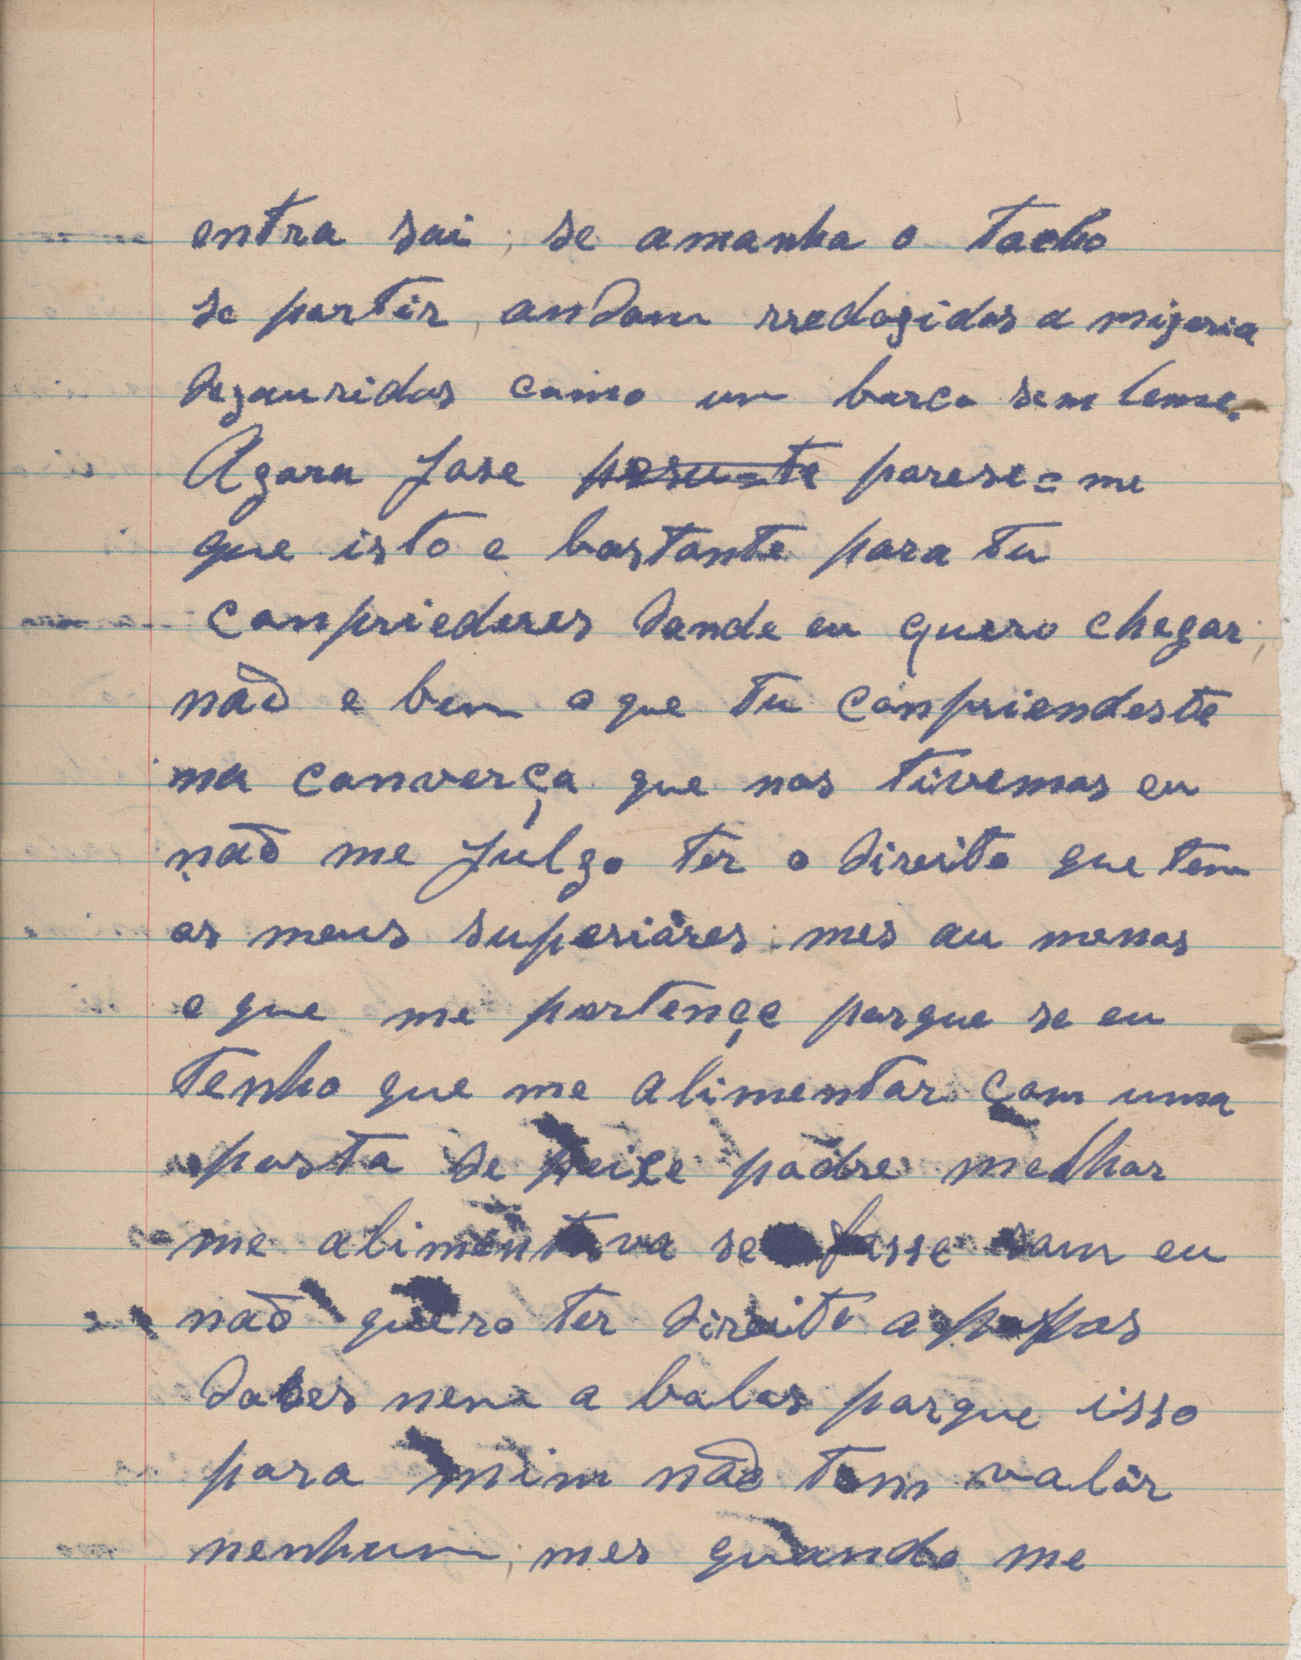 entra sai, se amanha o tacho
se partir, andam rredogidos a migeria
dezauridos como um barco sem leme.
Agora Jose parese=me
que isto e bastante para tu
conpriederes donde eu quero chegar,
não e bem o que tu conpriendeste
na converça que nos tivemos eu
não me julgo ter o direito que tem
os meus superióres mes au menos
o que me pertençe porque se eu
tenho que me alimentar com uma
posta de peixe podre melhor
me alimentava se fosse sam eu
não quero ter direito a papos
doces nem a bolos porque isso
para mim não tem valór
nenhum, mes quando me